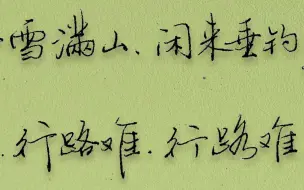 雪满山、闲来垂钓
.行路难.行路难